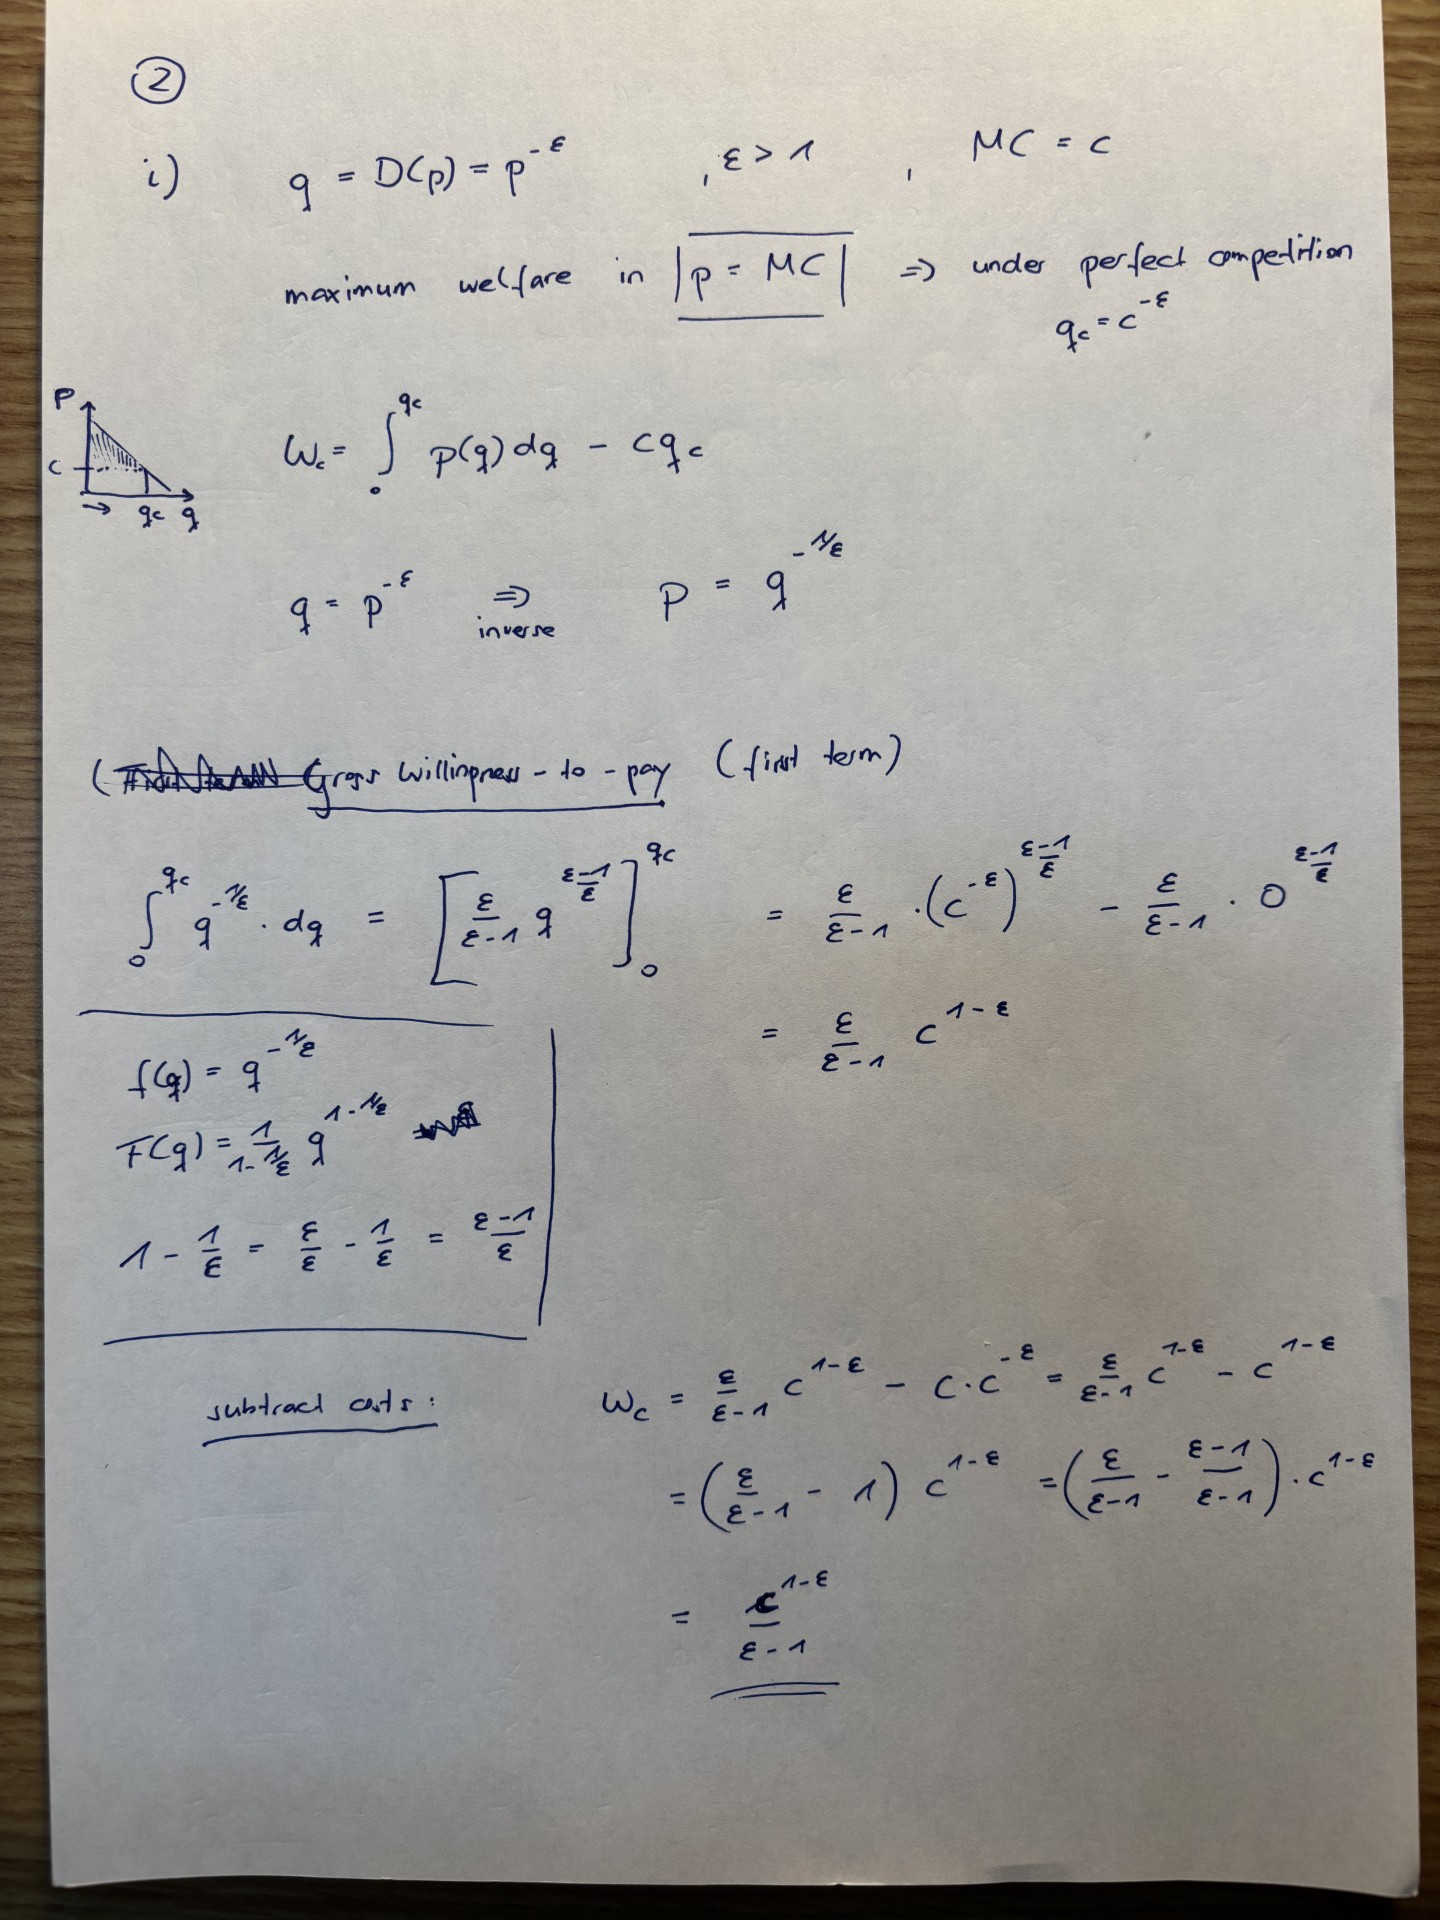 2
i) q = D(p) = p^-ε , ε > 1 , MC = c
maximum welfare in |p = MC| ⇒ under perfect competition
q_c = c^-ε
P
c
→ q_c q
W_c = ∫_0^q_c p(q) dq - c q_c
q = p^-ε ⇒ p = q^-1/ε
inverse
( Gross Willingness-to-pay (first term)
∫_0^q_c q^-1/ε · dq = [ε/(ε-1) q^((ε-1)/ε)]_0^q_c = ε/(ε-1) · (c^-ε)^((ε-1)/ε) - ε/(ε-1) · 0^((ε-1)/ε)
= ε/(ε-1) c^(1-ε)
f(q) = q^-1/ε
F(q) = 1/(1-1/ε) q^(1-1/ε)
1 - 1/ε = ε/ε - 1/ε = (ε-1)/ε
subtract costs: W_c = ε/(ε-1) c^(1-ε) - c·c^-ε = ε/(ε-1) c^(1-ε) - c^(1-ε)
= (ε/(ε-1) - 1) c^(1-ε) = (ε/(ε-1) - (ε-1)/(ε-1)) · c^(1-ε)
= c^(1-ε)/(ε-1)